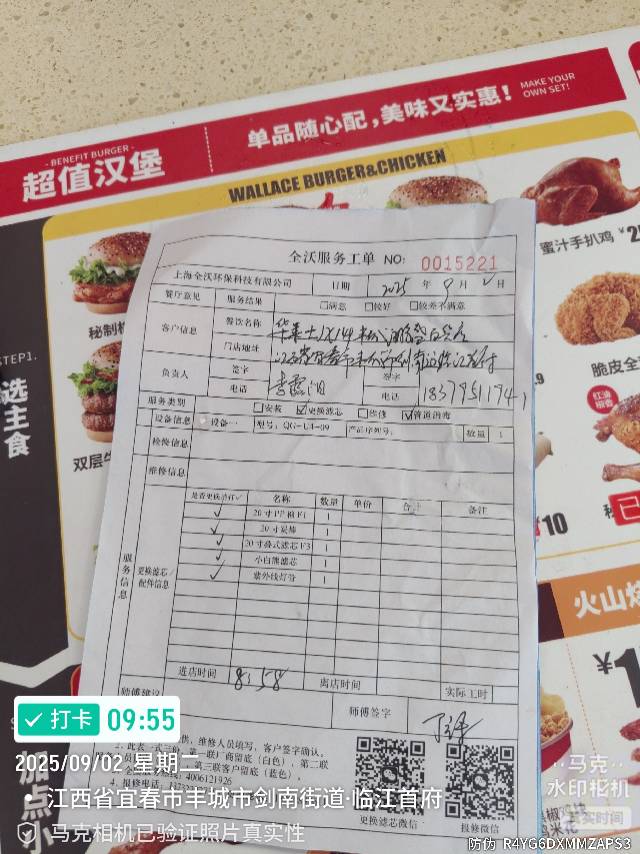 - BENEFIT BURGER -
超值汉堡
单品随心配，美味又实惠！
MAKE YOUR
OWN SET!
WALLACE BURGER&CHICKEN
蜜汁手扒鸡
秘制
双层牛
脆皮全
STEP1.
选主食
红油
椒香
¥10
火山烤
¥1
全沃服务工单 NO: 0015221
上海全沃环保科技有限公司 日期 2025 年 9 月 2 日
餐厅意见 服务结果 □满意 □较好 □较差不满意
客户信息 餐饮名称
门店地址
负责人 签字 签字
电话 电话 18379511941
服务类别 □安装 ☑更换滤芯 □维修 ☑管道消毒
设备信息 设备一 型号：QG-U4-09 产品序列号： 数量 1
检修信息
维修信息
服务信息 更换滤芯/配件信息
是否更换请打✓ 名称 数量 单价 合计 备注
✓ 20寸PP棉F1 1
✓ 20寸炭棒 1
✓ 20寸叠式滤芯F3 1
✓ 小白熊滤芯 1
✓ 紫外线灯管 1
进店时间 8:58 离店时间 实际工时
师傅建议 师傅签字
供，维修人员填写，客户签字确认。
2、此表一式三份，第一联厂商留底（白色），第二联
第三联客户留底（蓝色）。
4006121926
更换滤芯微信 报修微信
加点小
打卡 09:55
2025/09/02 星期二
江西省宜春市丰城市剑南街道·临江首府
马克相机已验证照片真实性
马克
水印相机
真实时间
防伪 R4YG6DXMMZAPS3